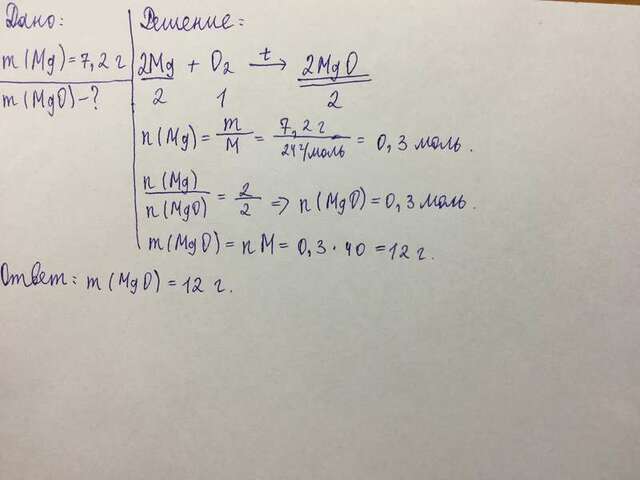 Дано:
m(Mg)=7,2 г
m(MgO)-?
Решение:
2Mg + O2 t→ 2MgO
2 1 2
n(Mg)= m/M = 7,2 г/24 г/моль = 0,3 моль.
n(Mg)/n(MgO) = 2/2 => n(MgO)=0,3 моль.
m(MgO)= nM = 0,3·40 =12 г.
Ответ: m(MgO)=12 г.